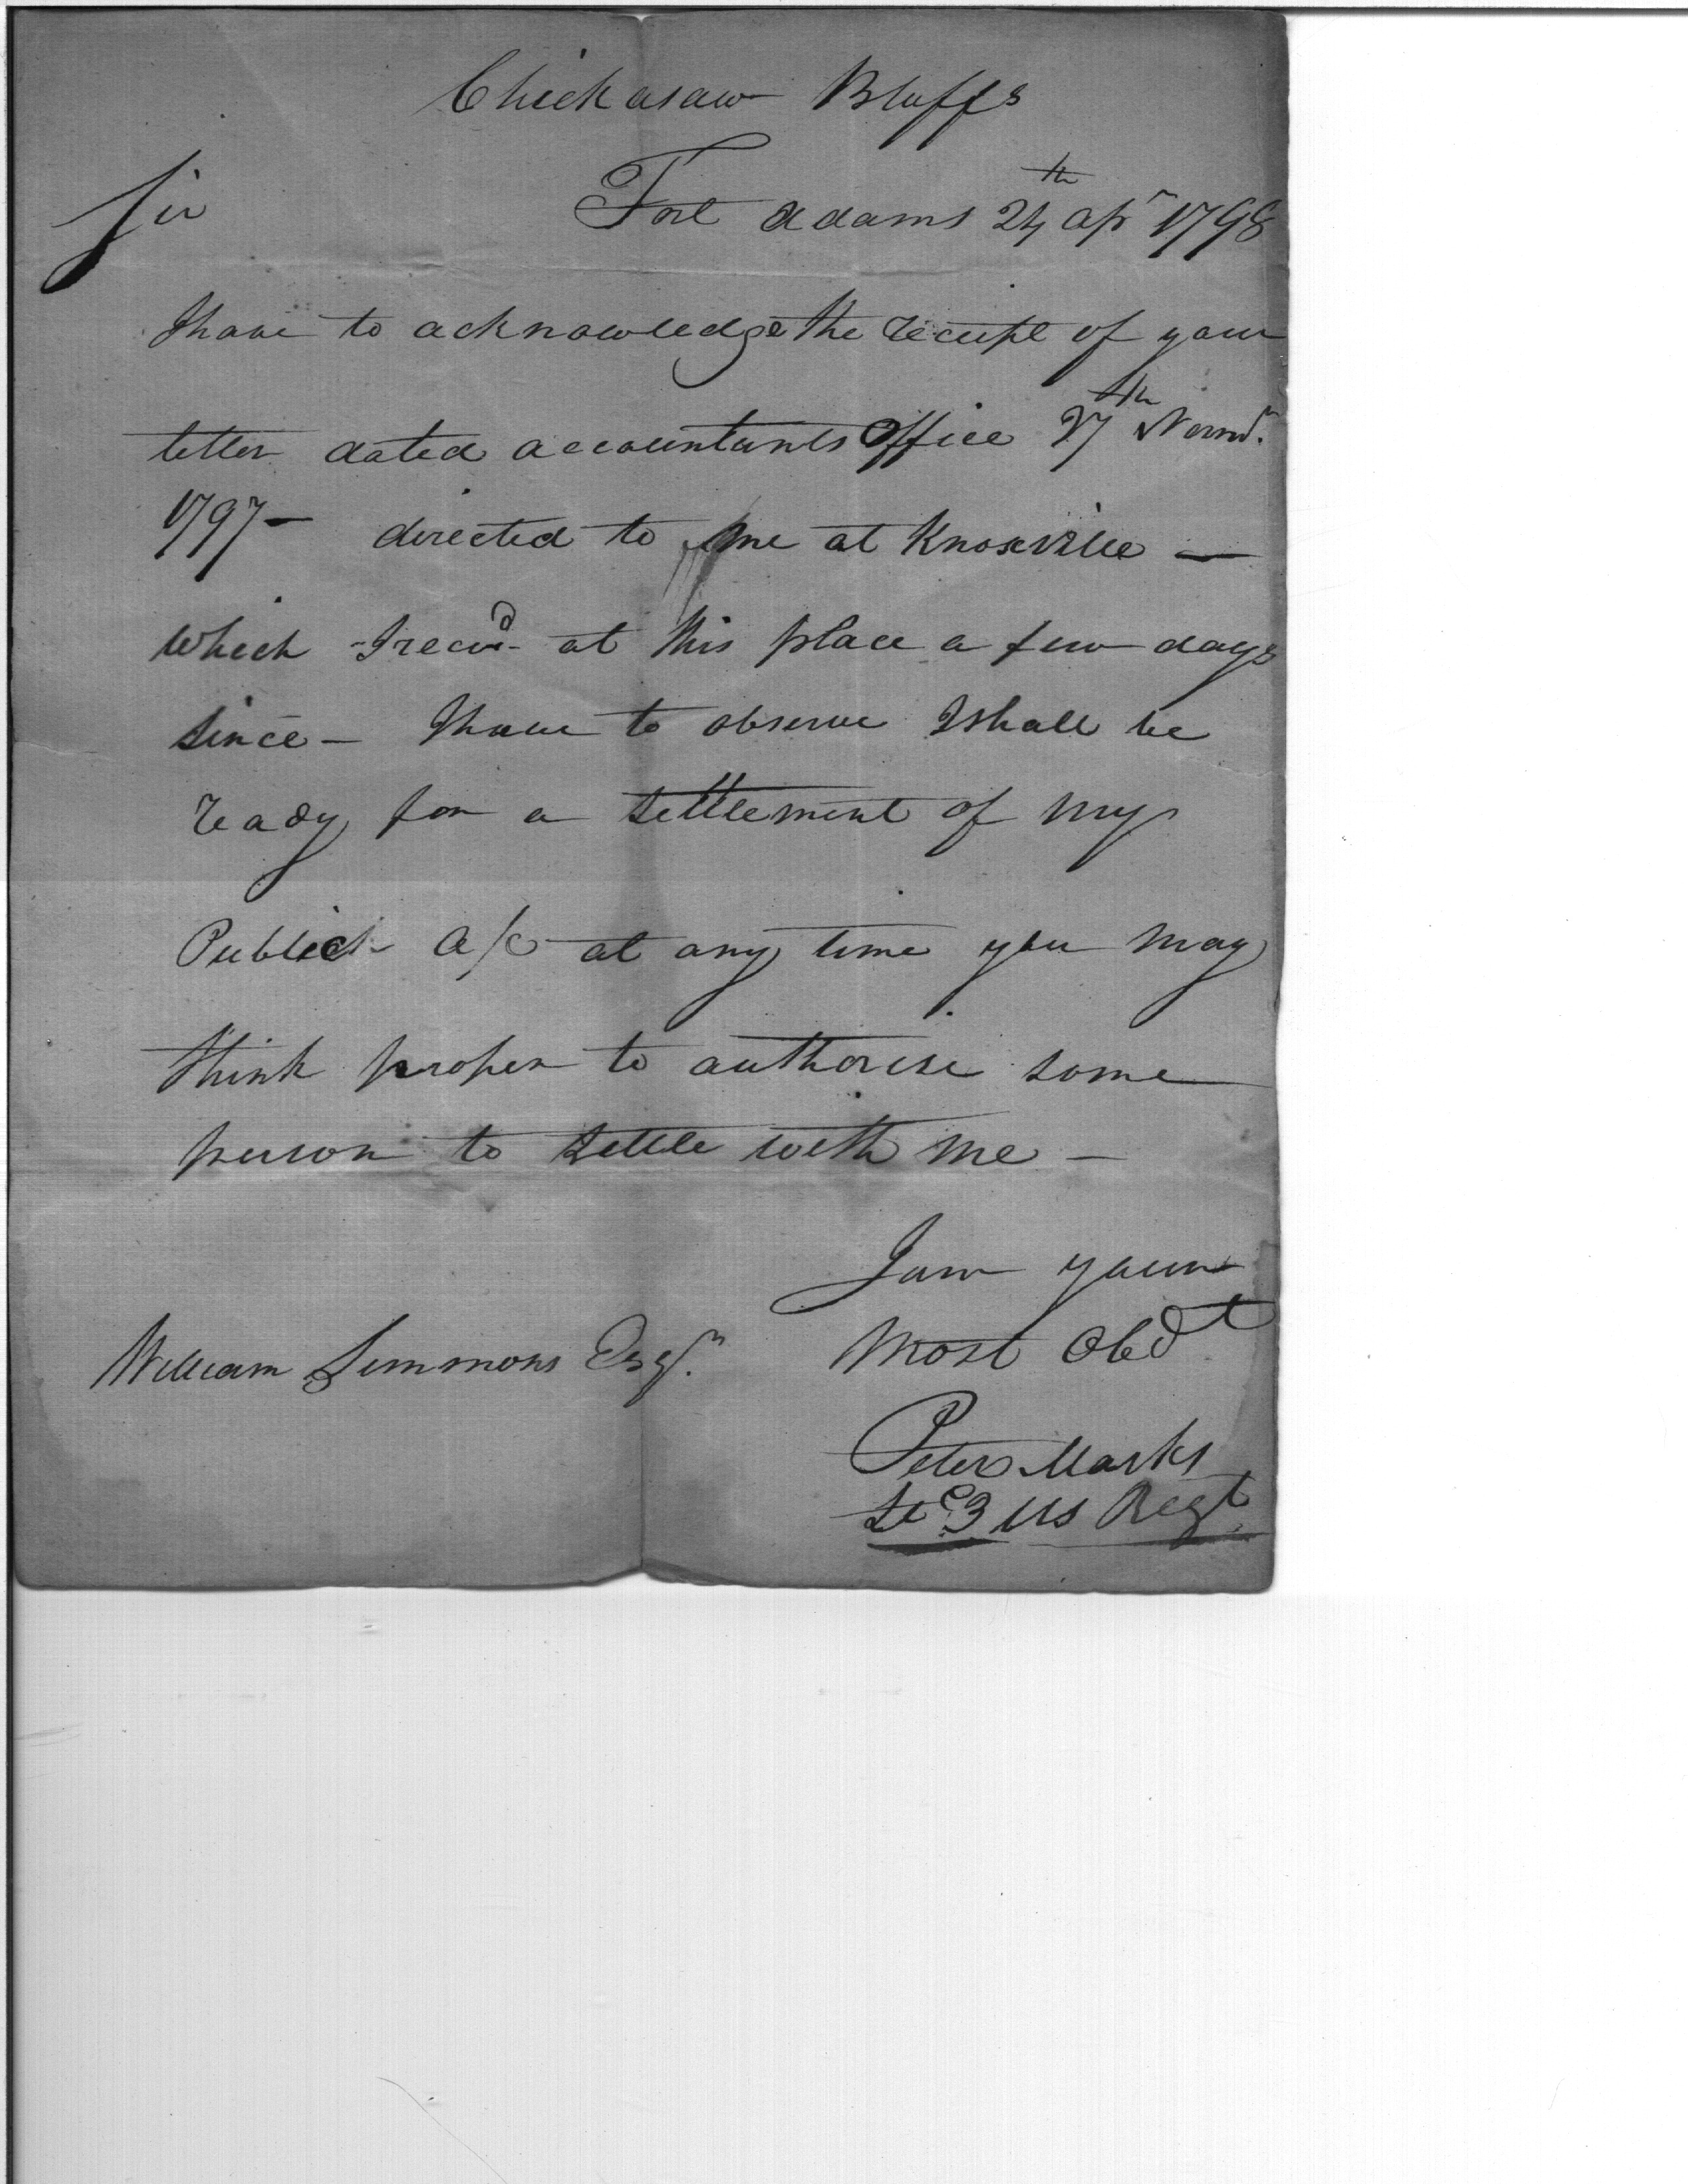 Chickasaw Bluffs
Sir
Fort Adams 24th apr 1798
I have to acknowledge the receipt of your
letter dated accountants Office 27th Novmr.
1797 - directed to me at Knoxville —
which I recvd at this place a few days
since - I have to observe I shall be
ready for a settlement of my
Publick a/c at any time you may
think proper to authorise some
person to settle with me -
I am your
Most Obdt
William Simmons Esqr.
Peter Marks
Lt 3 US Regt